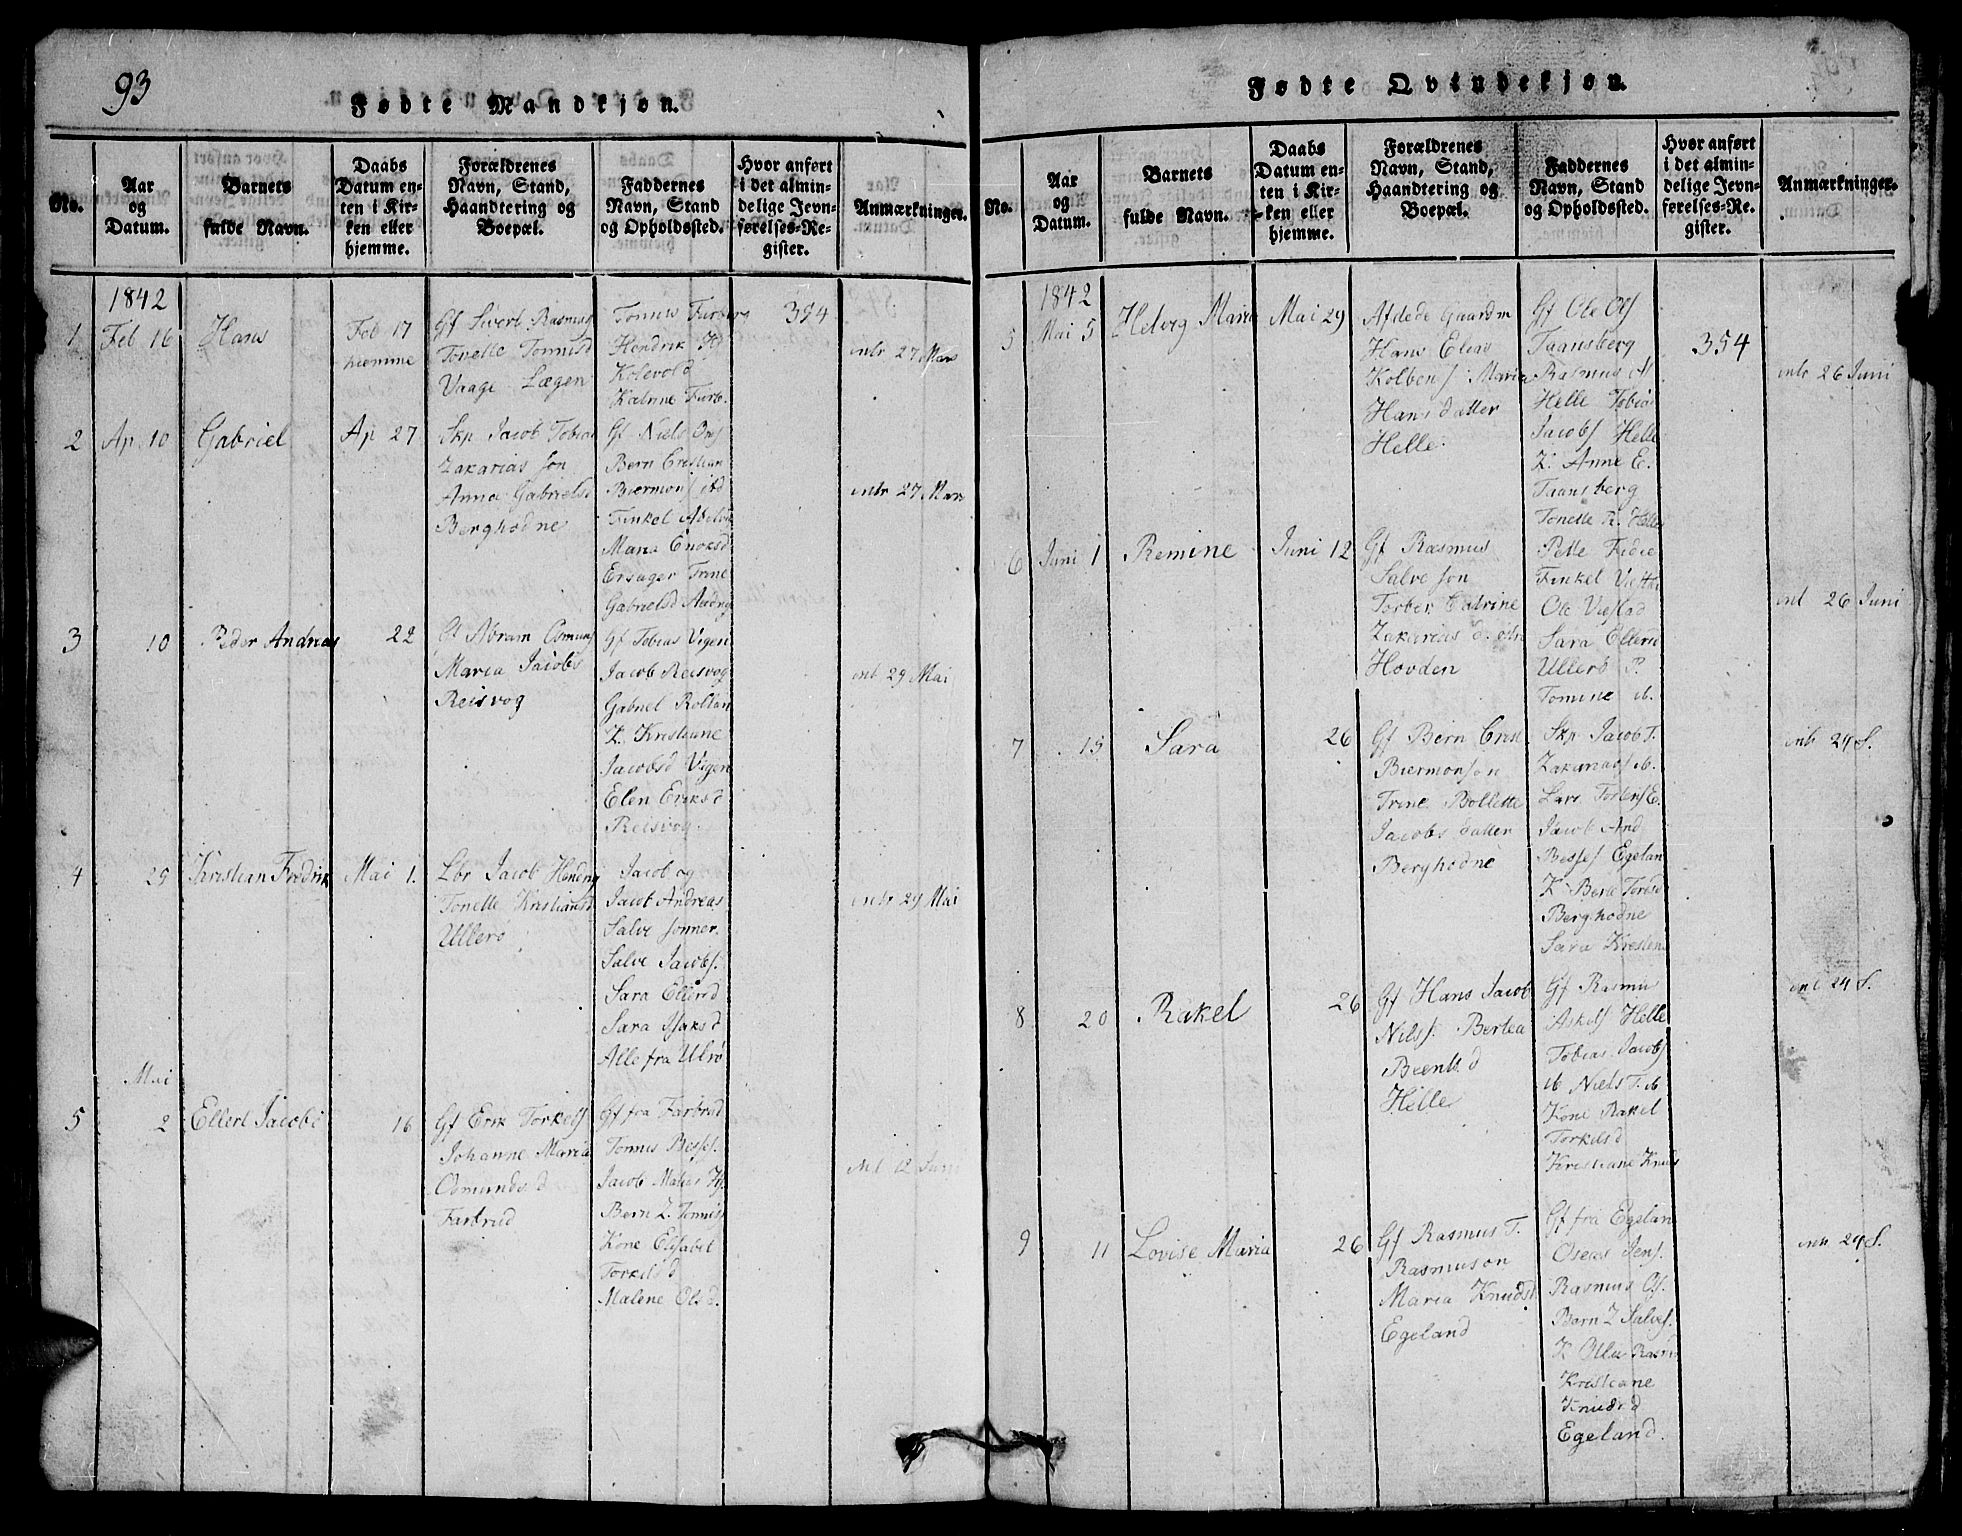 93
Fødte Mandkjøn.
No.
Aar
og
Datum.
Barnets
fulde Navn.
Daabs
Datum en-
ten i Kir-
ken eller
hjemme.
Forældrenes
Navn, Stand,
Haandtering og
Boepæl.
Faddernes
Navn, Stand
og Opholdssted.
Hvor anført
i det almin-
delige Jevn-
førelses-Re-
gister.
Anmærkninger.
1842
1
Feb 16
Hans
Feb 17
hiemme
Gf Sivert Rasmus
Tonette Tønnisd
Vaage Lægen
Tønnes
Hendrik
Kolevold
354
intr 27 Mars
2
Ap. 10
Gabriel
Ap 27
Skp Jacob Tobias
Zakarias søn
Anna Gabrielsd
Berghodne
Gf Niels
Bern Cristian
Maria Enoksd
Ersager Trine
Gabrielsd
intr 27 Mars
3
10
Peder Andreas
22
Gf Abram
Maria Jacobs
Reisvog
Gf Tobias Vigen
Jacob Reisvog
Gabriel
K. Kristiane
Jacobsd Vigen
Elen Eriksd
Reisvog
int 29 Mai
4
25
Kristian Fredrik
Mai 1.
Lbr Jacob
Tonette Kristiansd
Ullerø
Jacob og
Jacob Andreas
Salve sønner
Salve Jacobs.
Sara Ellersd
Sara Isaksd
Alle fra Ulrø
intr 29 Mai
Mai
5
2
Ellert Jacob
16
Gf Erik Torkels
Johanne Maria
Osmundsd
Farbrud
Gf fra Farbrud
Tønnes
Jacob
Bern Z. Tønnis
Kone Elisabet
Torkelsd
Malene Olsd.
int 12 Juni
Fødte Qvindekjøn.
No.
Aar
og
Datum.
Barnets
fulde Navn.
Daabs
Datum en-
ten i Kir-
ken eller
hjemme.
Forældrenes
Navn, Stand,
Haandtering og
Boepæl.
Faddernes
Navn, Stand
og Opholdssted.
Hvor anført
i det almin-
delige Jevn-
førelses-Re-
gister.
Anmærkninger.
1842
5
Mai 5
Helvig Maria
Mai 29
Afdøde Gaardm
Hans Elias
Kolbens Maria
Hansdatter
Helle
Gf Ole Ols
Taansberg
Rasmus
Helle Tobias
Jacobs Helle
K. Anne E.
Taansberg
Tonette R. Helle
354
intr 26 Juni
6
Juni 1
Remine
Juni 12
Gf Rasmus
Salve søn
Torber Catrine
Zakarias d
Hovden
Finkel
Ole
Sara
Ullerø
Tomine
int 26 Juni
7
15
Sara
26
Gf Bern Cris
Biermonson
Trine Bollette
Jacobs datter
Berghodne
Skp Jacob T.
Zakarias
Jacob And
Egelan
K Berte
Berghodne
Sara Kristen
intr 24 S.
8
20
Rakel
26
Gf Hans Jacob
Nilss. Bertea
Berntsd
Helle
Gf Rasmus
Askels Helle
Tobias Jacobs
Niels T.
Kone Rakel
Torkilsd
Kristiane Knuds
int 24 S.
9
11
Lovise Maria
26
Gf Rasmus T.
Rasmuson
Maria Knudsd
Egeland
Gf fra Egelan
Oseas Jens.
Rasmus Os.
Bern Z Salves.
Kristiane
Knudsd
Egeland.
intr 24 S.